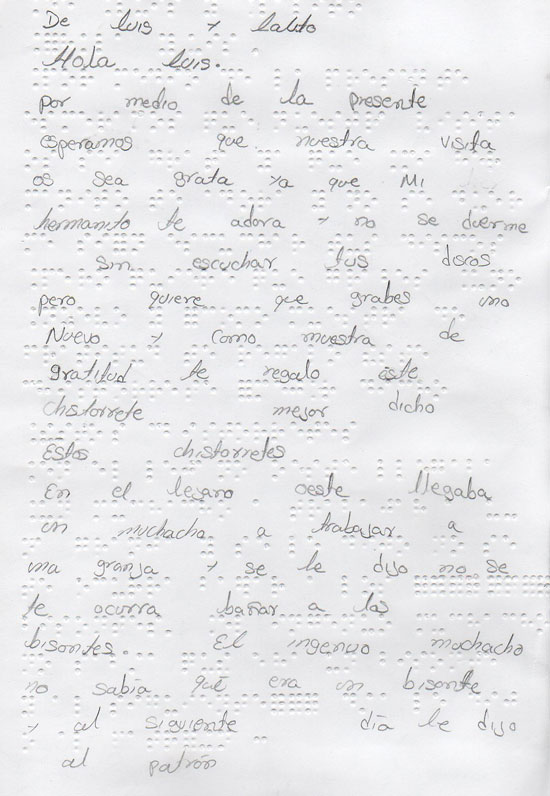 De Luis y Lalito
Hola Luis.
por medio de la presente
esperamos que nuestra visita
os sea grata ya que Mi
hermanito te adora y no se duerme
sin escuchar tus discos
pero quiere que grabes uno
Nuevo y como muestra de
gratitud te regalo este
chistorrete mejor dicho
Estos chistorretes
En el lejano oeste llegaba
un muchacho a trabajar a
una granja y se le dijo no se
te ocurra bañar a los
bisontes. El ingenuo muchacho
no sabía qué era un bisonte
y al siguiente día le dijo
al patrón